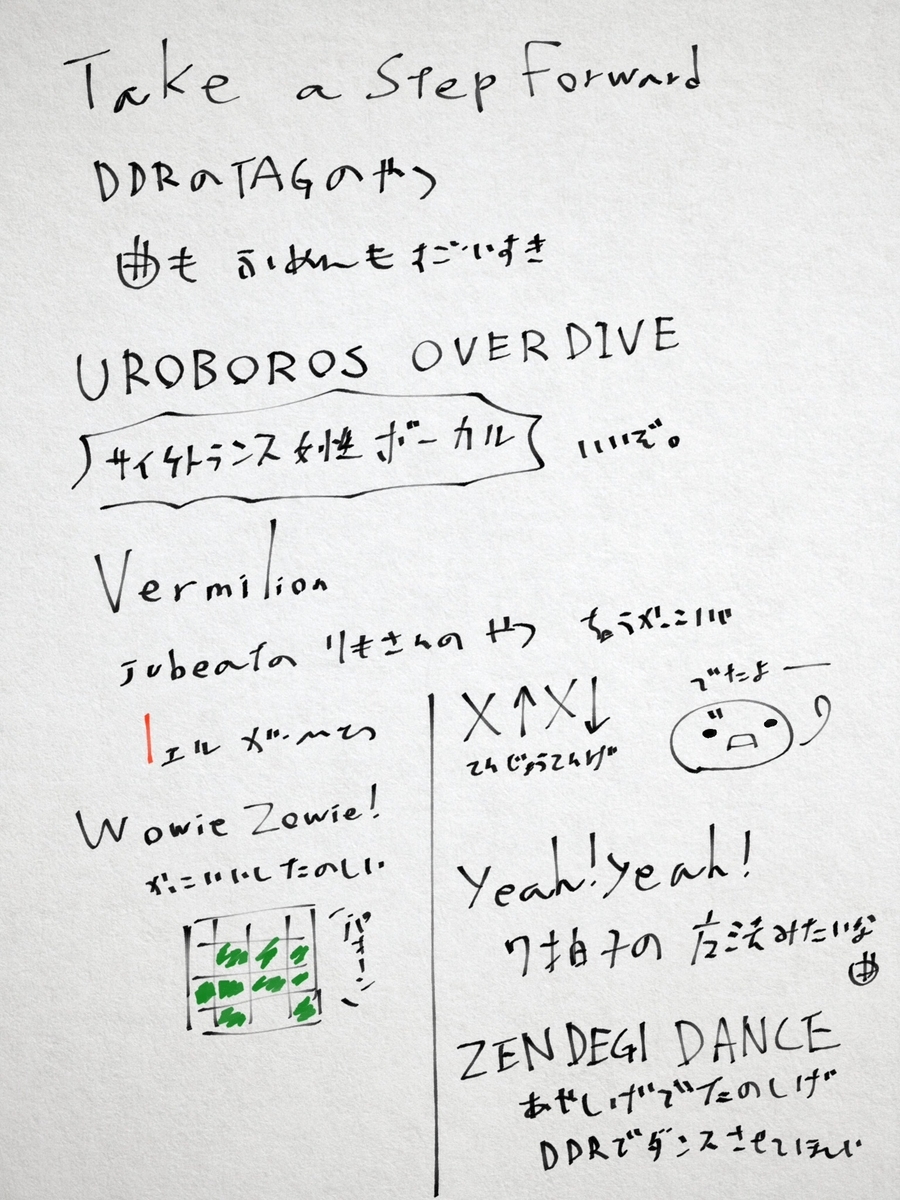 Take a Step Forward
DDRのTAGのやつ
曲も ふめんも すごいすき
UROBOROS OVERDIVE
サイケトランス女性ボーカル いいぞ。
Vermilion
jubeatの りもさんの やつ ちょうかっこいい
Wowie Zowie!
かっこいいしたのしい
(パォーン)
X↑X↓
てんじょうてんげ
でたよー
Yeah! Yeah!
7拍子の 方法みたいな
曲
ZENDEGI DANCE
あやしげでたのしげ
DDRでダンスさせてほしい